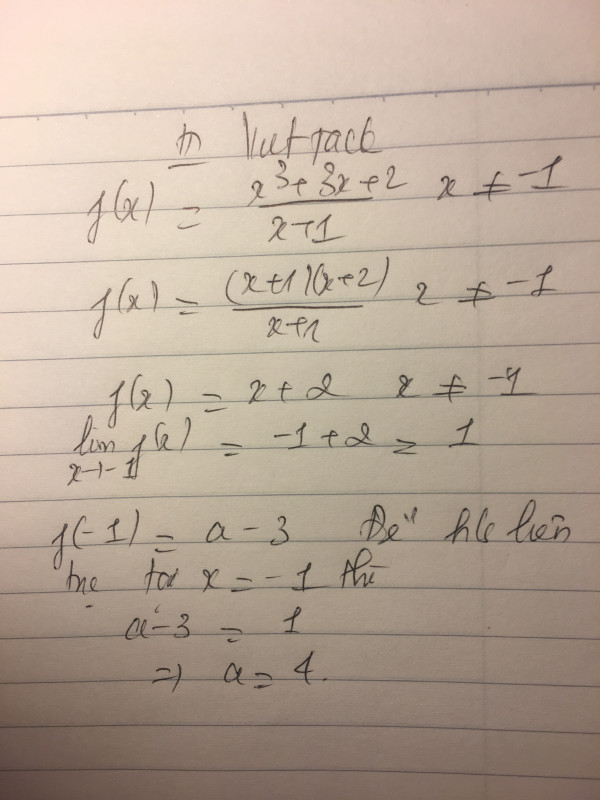 f(x) = x³+3x+2 / x+1 x ≠ -1
f(x) = (x+1)(x+2) / x+1 x ≠ -1
f(x) = x+2 x ≠ -1
lim x→-1 f(x) = -1+2 = 1
f(-1) = a-3 Để h/s liên
tục tại x = -1 thì
a-3 = 1
=> a = 4.